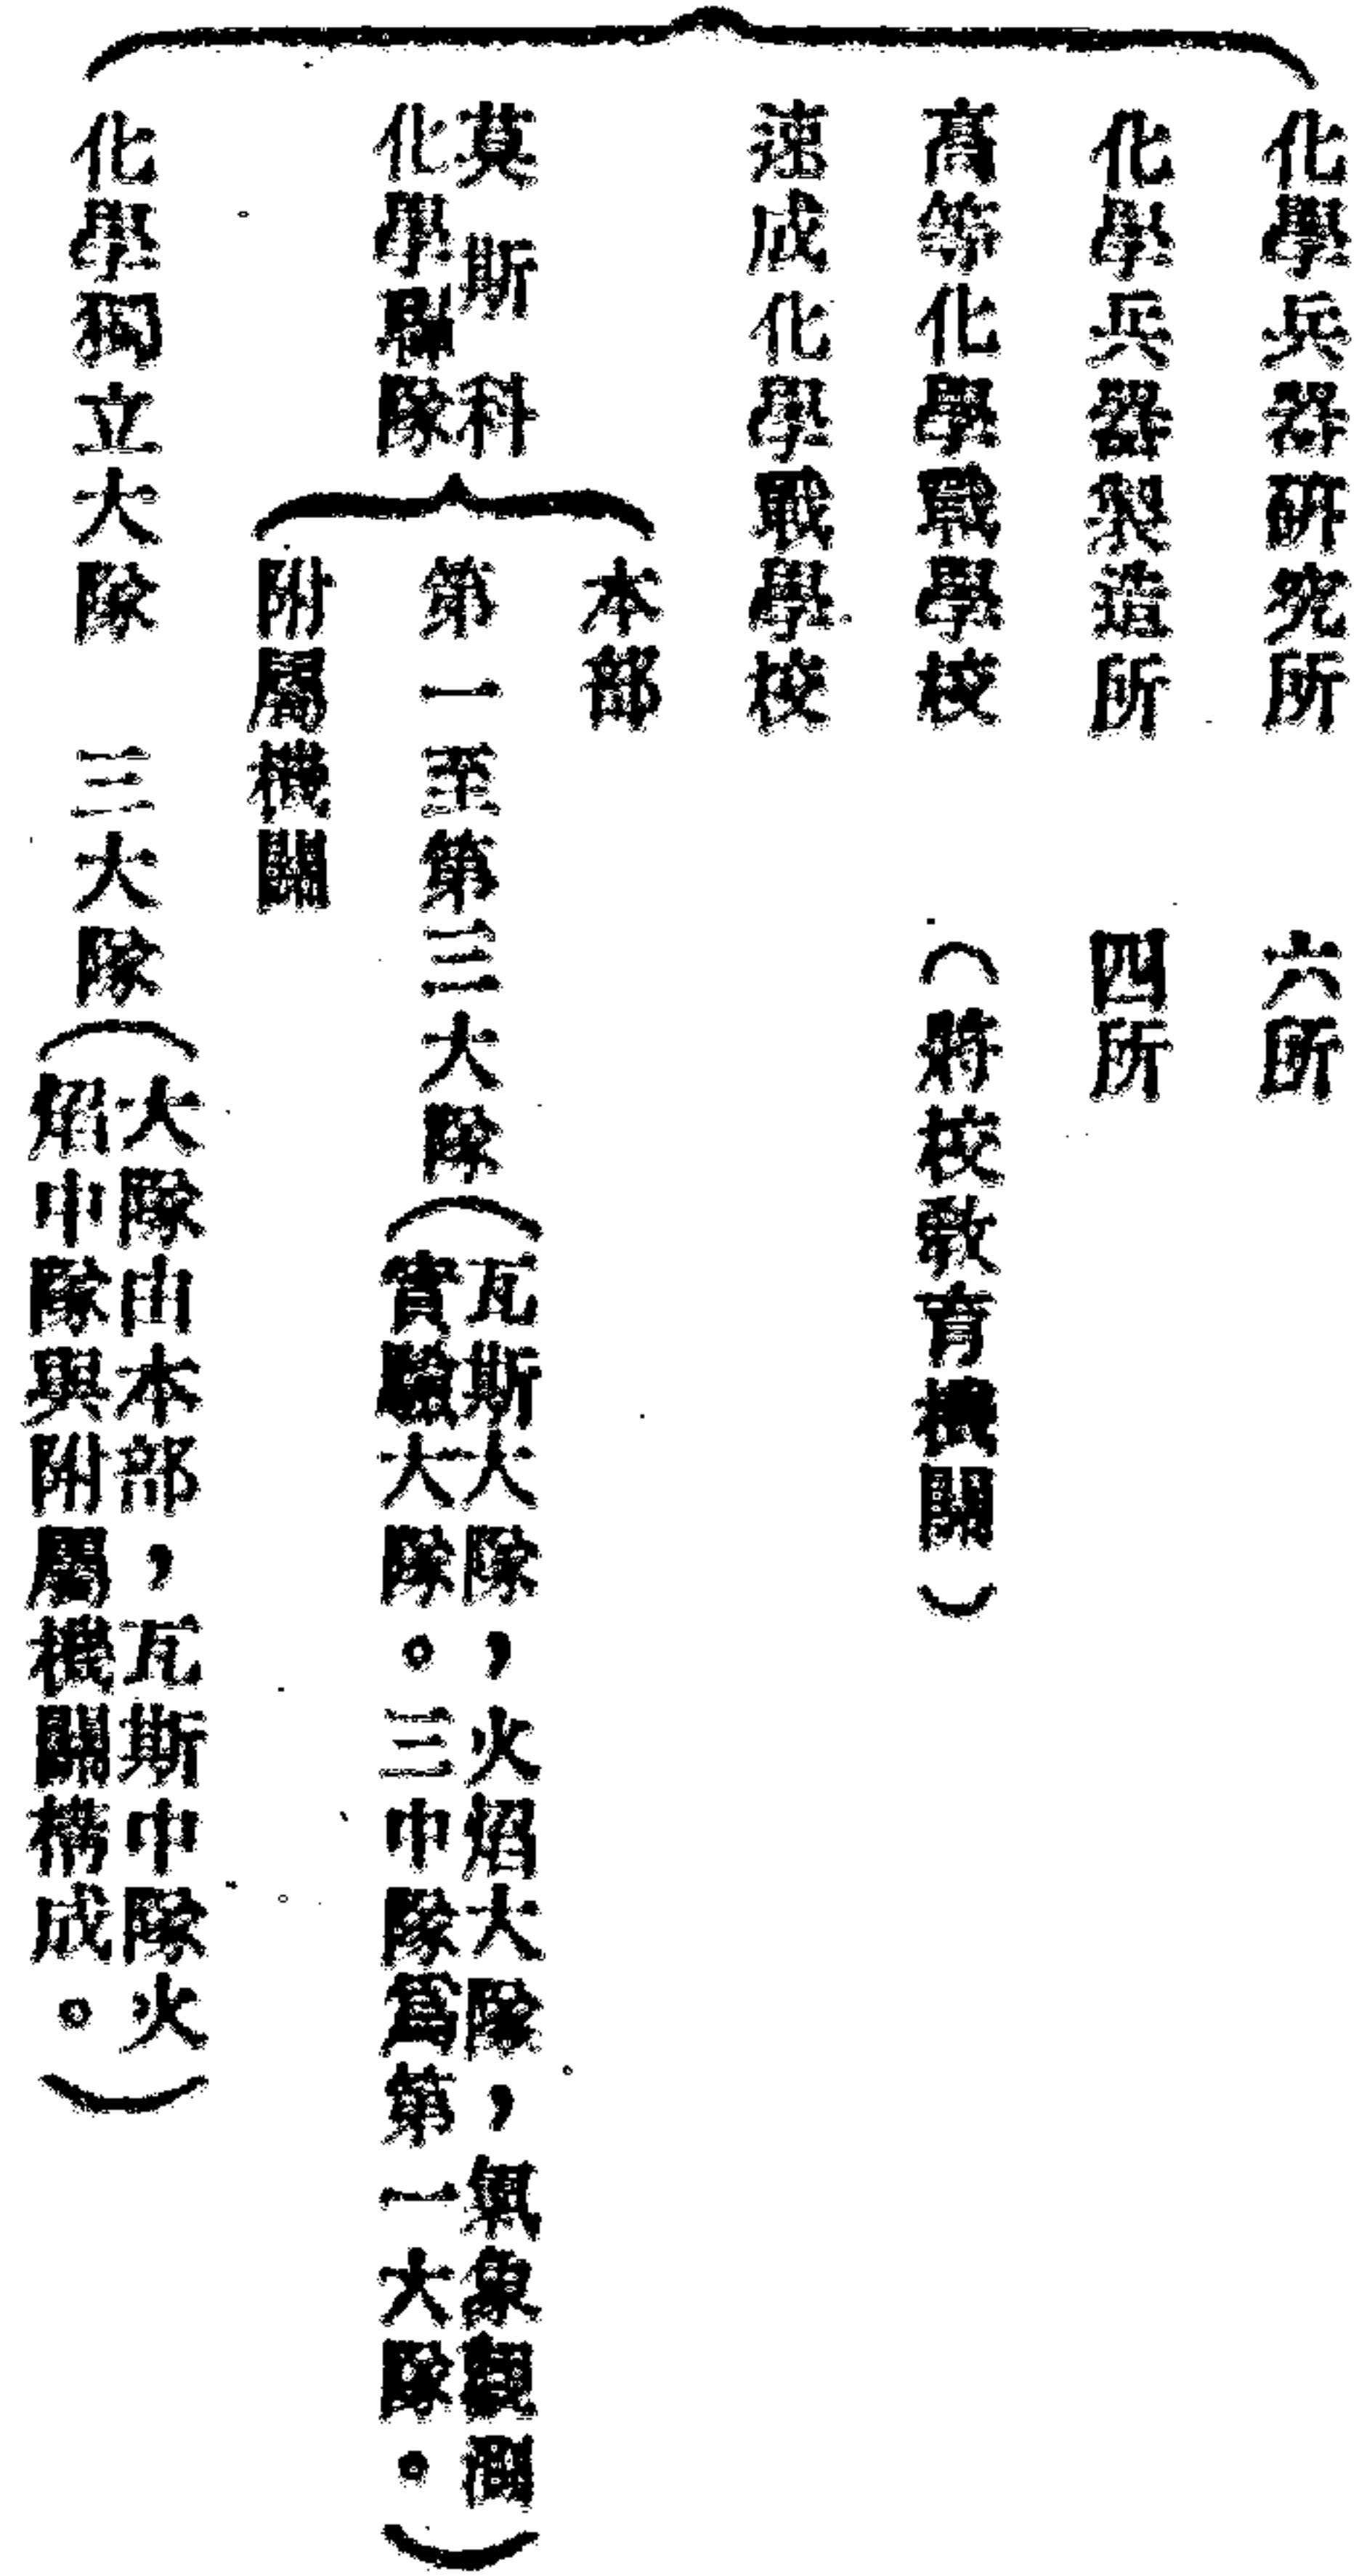 化學兵器硏究所　六所
化學兵器製造所　四所
高等化學戰學校　（將校敎育機關）
速成化學戰學校
莫斯科
化學聯隊
本部
第一至第三大隊（瓦斯大隊，火焰大隊，氣象觀測
實驗大隊。三中隊爲第一大隊。）
附屬機關
化學獨立大隊　三大隊（大隊由本部，瓦斯中隊火
焰中隊與附屬機關構成。）